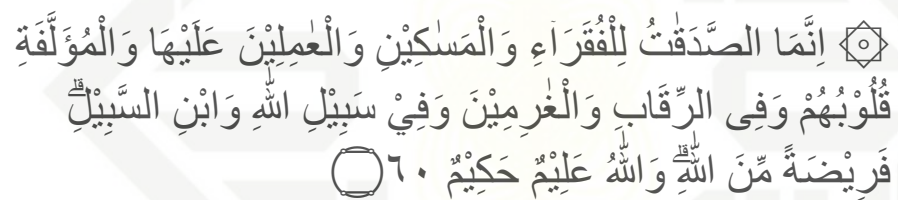 ۞ اِنَّمَا الصَّدَقٰتُ لِلْفُقَرَاۤءِ وَالْمَسٰكِيْنِ وَالْعٰمِلِيْنَ عَلَيْهَا وَالْمُؤَلَّفَةِ
قُلُوْبُهُمْ وَفِى الرِّقَابِ وَالْغٰرِمِيْنَ وَفِيْ سَبِيْلِ اللّٰهِ وَابْنِ السَّبِيْلِۗ
فَرِيْضَةً مِّنَ اللّٰهِۗ وَاللّٰهُ عَلِيْمٌ حَكِيْمٌ ٦٠